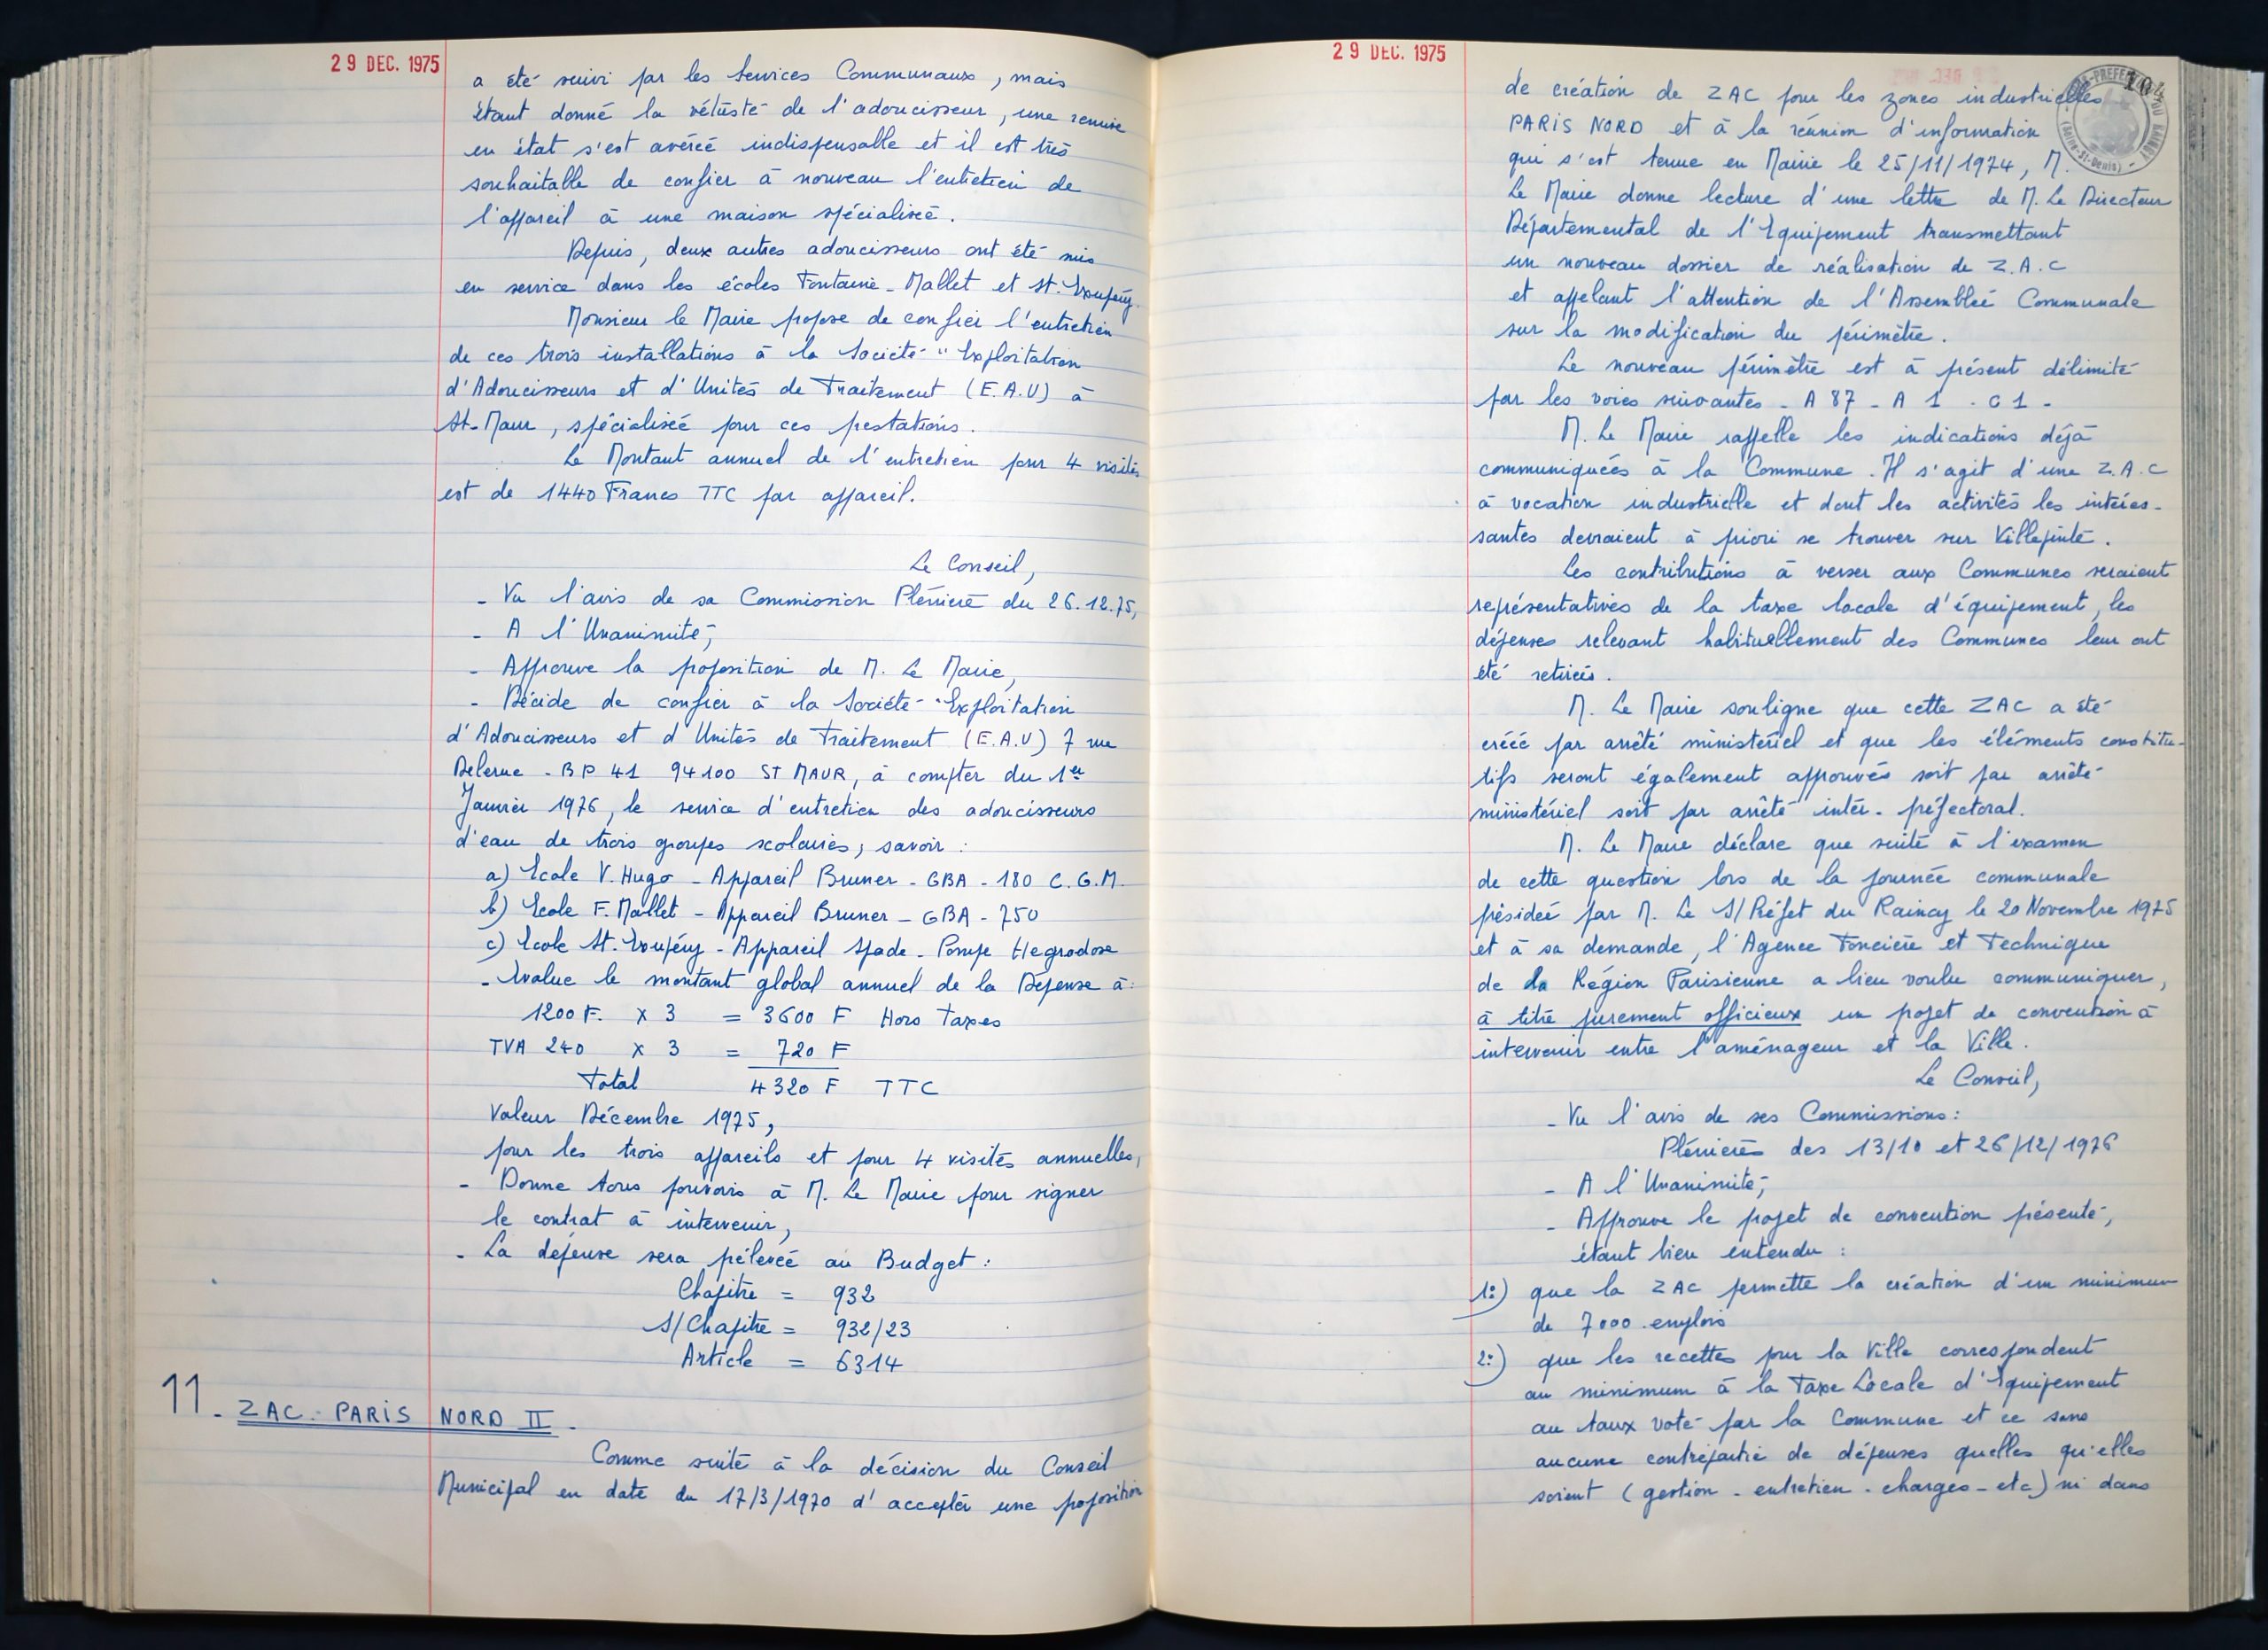 29 DEC. 1975
a été suivi par les Services Communaux, mais
étant donné la vétusté de l'adoucisseur, une remise
en état s'est avérée indispensable et il est très
souhaitable de confier à nouveau l'entretien de
l'appareil à une maison spécialisée.
Depuis, deux autres adoucisseurs ont été mis
en service dans les écoles Fontaine-Mallet et St. Exupéry.
Monsieur le Maire propose de confier l'entretien
de ces trois installations à la Société "Exploitation
d'Adoucisseurs et d'Unités de Traitement (E.A.U) à
St-Maur, spécialisée pour ces prestations.
Le Montant annuel de l'entretien pour 4 visites
est de 1440 Francs TTC par appareil.
Le Conseil,
- Vu l'avis de sa Commission Plénière du 26.12.75,
- A l'Unanimité,
- Approuve la proposition de M. Le Maire,
- Décide de confier à la Société "Exploitation
d'Adoucisseurs et d'Unités de Traitement (E.A.U) 7 rue
Delerue - BP 41 94100 ST MAUR, à compter du 1er
Janvier 1976, le service d'entretien des adoucisseurs
d'eau de trois groupes scolaires, savoir :
a) Ecole V. Hugo - Appareil Bruner - GBA - 180 C.G.M.
b) Ecole F. Mallet - Appareil Bruner - GBA - 750
c) Ecole St. Exupéry - Appareil Spade - Pompe Hegrodose
- Evalue le montant global annuel de la Dépense à :
1200 F. x 3 = 3600 F Hors Taxes
TVA 240 x 3 = 720 F
Total 4320 F TTC
Valeur Décembre 1975,
pour les trois appareils et pour 4 visites annuelles,
- Donne tous pouvoirs à M. Le Maire pour signer
le contrat à intervenir,
- La dépense sera prélevée au Budget :
Chapitre = 932
S/Chapitre = 932/23
Article = 6314
11. ZAC. PARIS NORD II.
Comme suite à la décision du Conseil
Municipal en date du 17/3/1970 d'accepter une proposition
29 DEC. 1975
104
de création de ZAC pour les zones industrielles
PARIS NORD et à la réunion d'information
qui s'est tenue en Mairie le 25/11/1974, M.
Le Maire donne lecture d'une lettre de M. Le Directeur
Départemental de l'Equipement transmettant
un nouveau dossier de réalisation de Z.A.C
et appelant l'attention de l'Assemblée Communale
sur la modification du périmètre.
Le nouveau périmètre est à présent délimité
par les voies suivantes - A 87 - A 1 - C 1 -
M. Le Maire rappelle les indications déjà
communiquées à la Commune. Il s'agit d'une Z.A.C
à vocation industrielle et dont les activités les intéres-
santes devraient à priori se trouver sur Villepinte.
Les contributions à verser aux Communes seraient
représentatives de la taxe locale d'équipement, les
dépenses relevant habituellement des Communes leur ont
été retirées.
M. Le Maire souligne que cette ZAC a été
créée par arrêté ministériel et que les éléments constitu-
tifs seront également approuvés soit par arrêté
ministériel soit par arrêté inter-préfectoral.
M. Le Maire déclare que suite à l'examen
de cette question lors de la journée communale
présidée par M. Le S/Préfet du Raincy le 20 Novembre 1975
et à sa demande, l'Agence Foncière et Technique
de la Région Parisienne a bien voulu communiquer,
à titre purement officieux un projet de convention à
intervenir entre l'aménageur et la Ville.
Le Conseil,
- Vu l'avis de ses Commissions :
Plénières des 13/10 et 26/12/1976
- A l'Unanimité,
- Approuve le projet de convention présenté,
étant bien entendu :
1:) que la ZAC permette la création d'un minimum
de 7000 emplois
2:) que les recettes pour la Ville correspondent
au minimum à la Taxe Locale d'Equipement
au taux voté par la Commune et ce sans
aucune contrepartie de dépenses quelles qu'elles
soient (gestion - entretien - charges - etc) ni dans